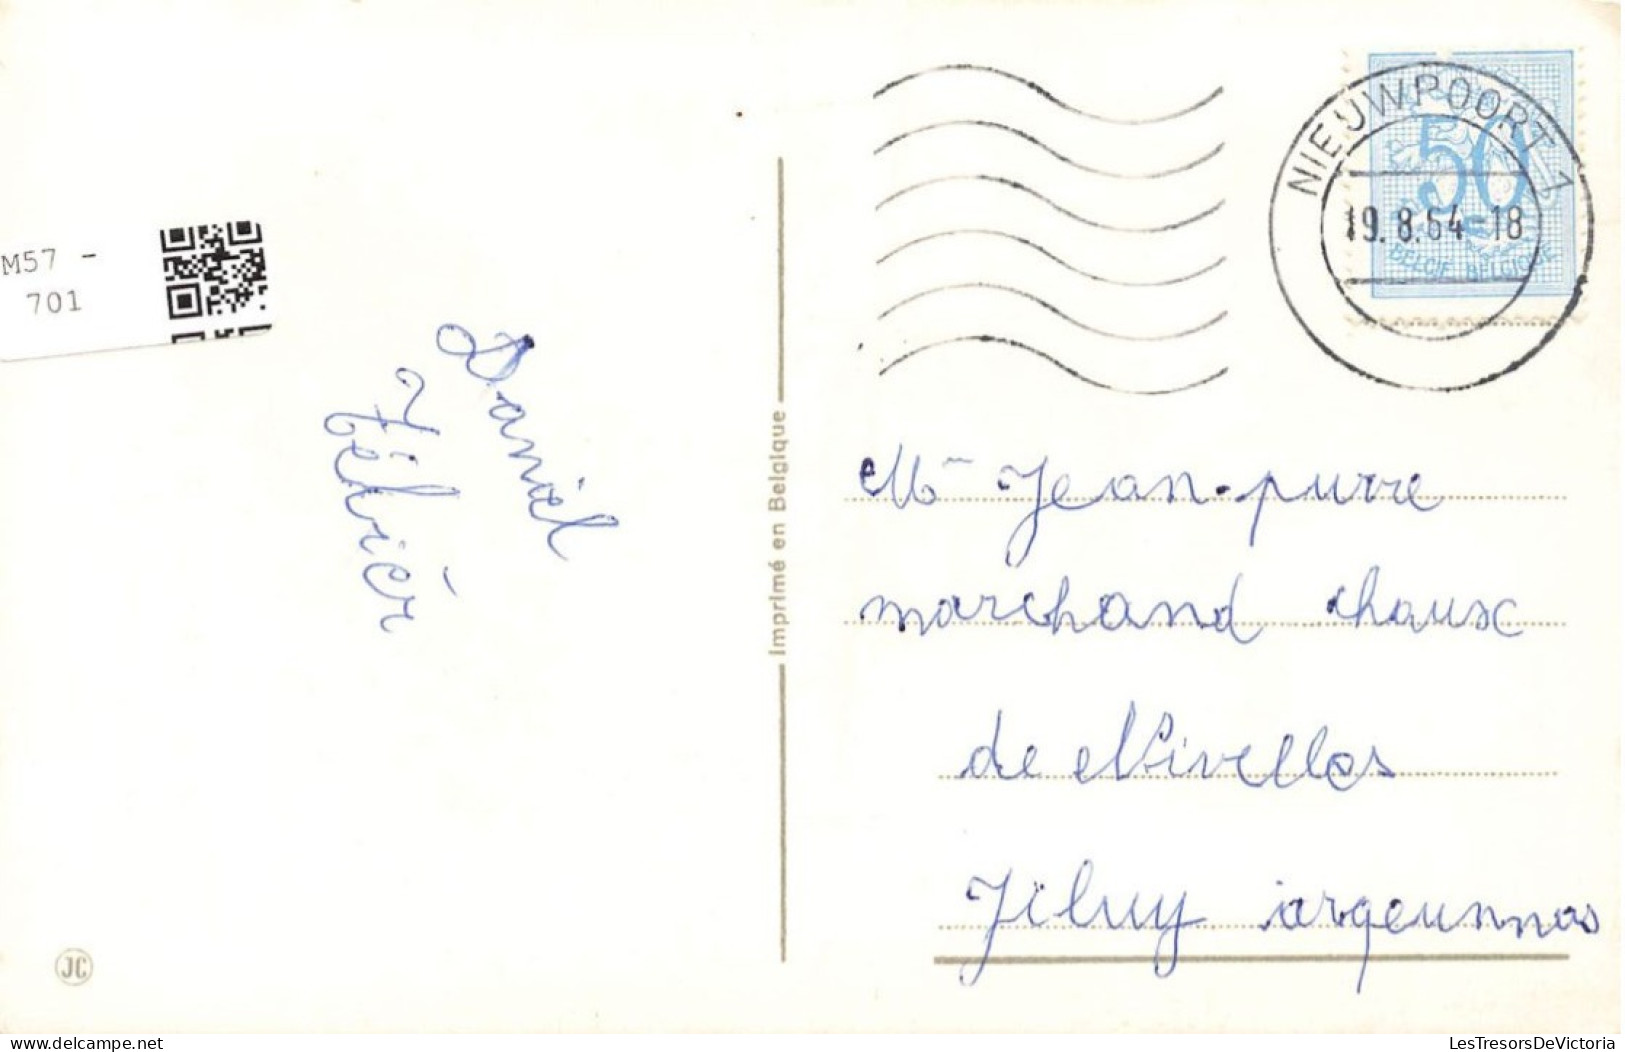 M57 -
701
Daniel
Imprimé en Belgique
JC
NIEUWPOORT 1
50
19.8.64-18
BELGIE BELGIQUE
Mr Jean-purre
marchand chaux
de Nivelles
Jiluy
delcampe.net
LesTresorsDeVictoria